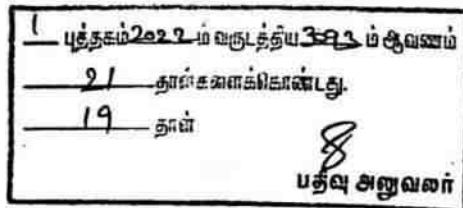 1 புத்தகம் 2022 ம் வருடத்திய 3593 ம் ஆவணம்
21 தாள்களைக்கொண்டது.
19 தாள்
பதிவு அலுவலர்